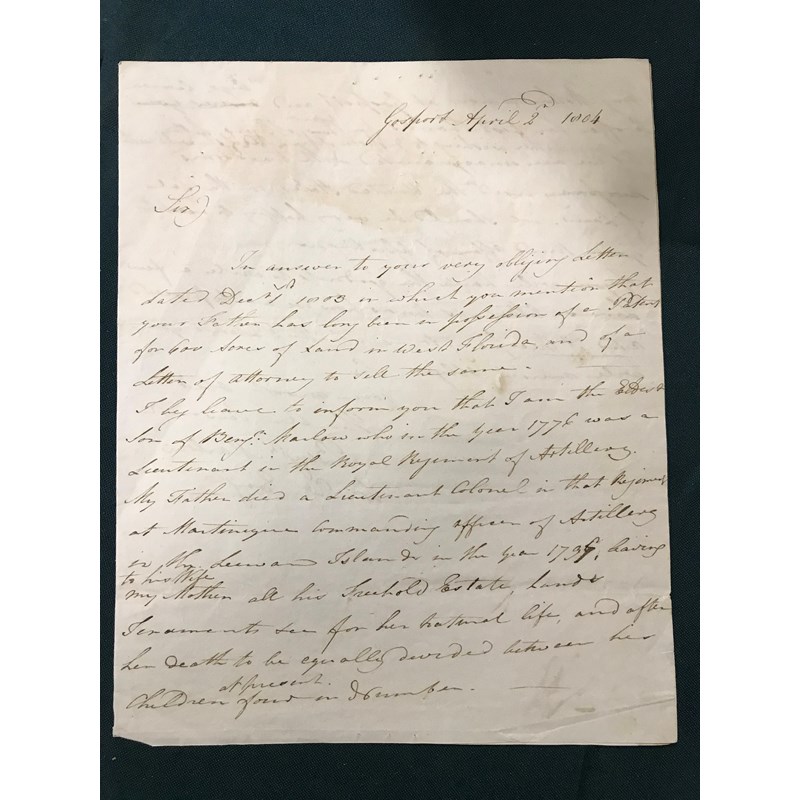 Gosport April 2d 1804
Sir
In answer to your very obliging Letter
dated Decr 1st 1803 in which you mention that
your Father has long been in possession of a Patent
for 600 Acres of Land in West Florida, and of a
Letter of attorney to sell the same.
I beg leave to inform you that I am the Eldest
Son of Benjn Marlow who in the year 1776 was a
Lieutenant in the Royal Regiment of Artillery.
My Father died a Lieutenant Colonel in that Regiment
at Martinique Commanding officer of Artillery
in the Leeward Islands in the year 179, leaving
to his Wife
my Mother all his Freehold Estate, Lands
Tenaments &c for her Natural life, and after
her death to be equally divided between her
at present.
Children four in Number.